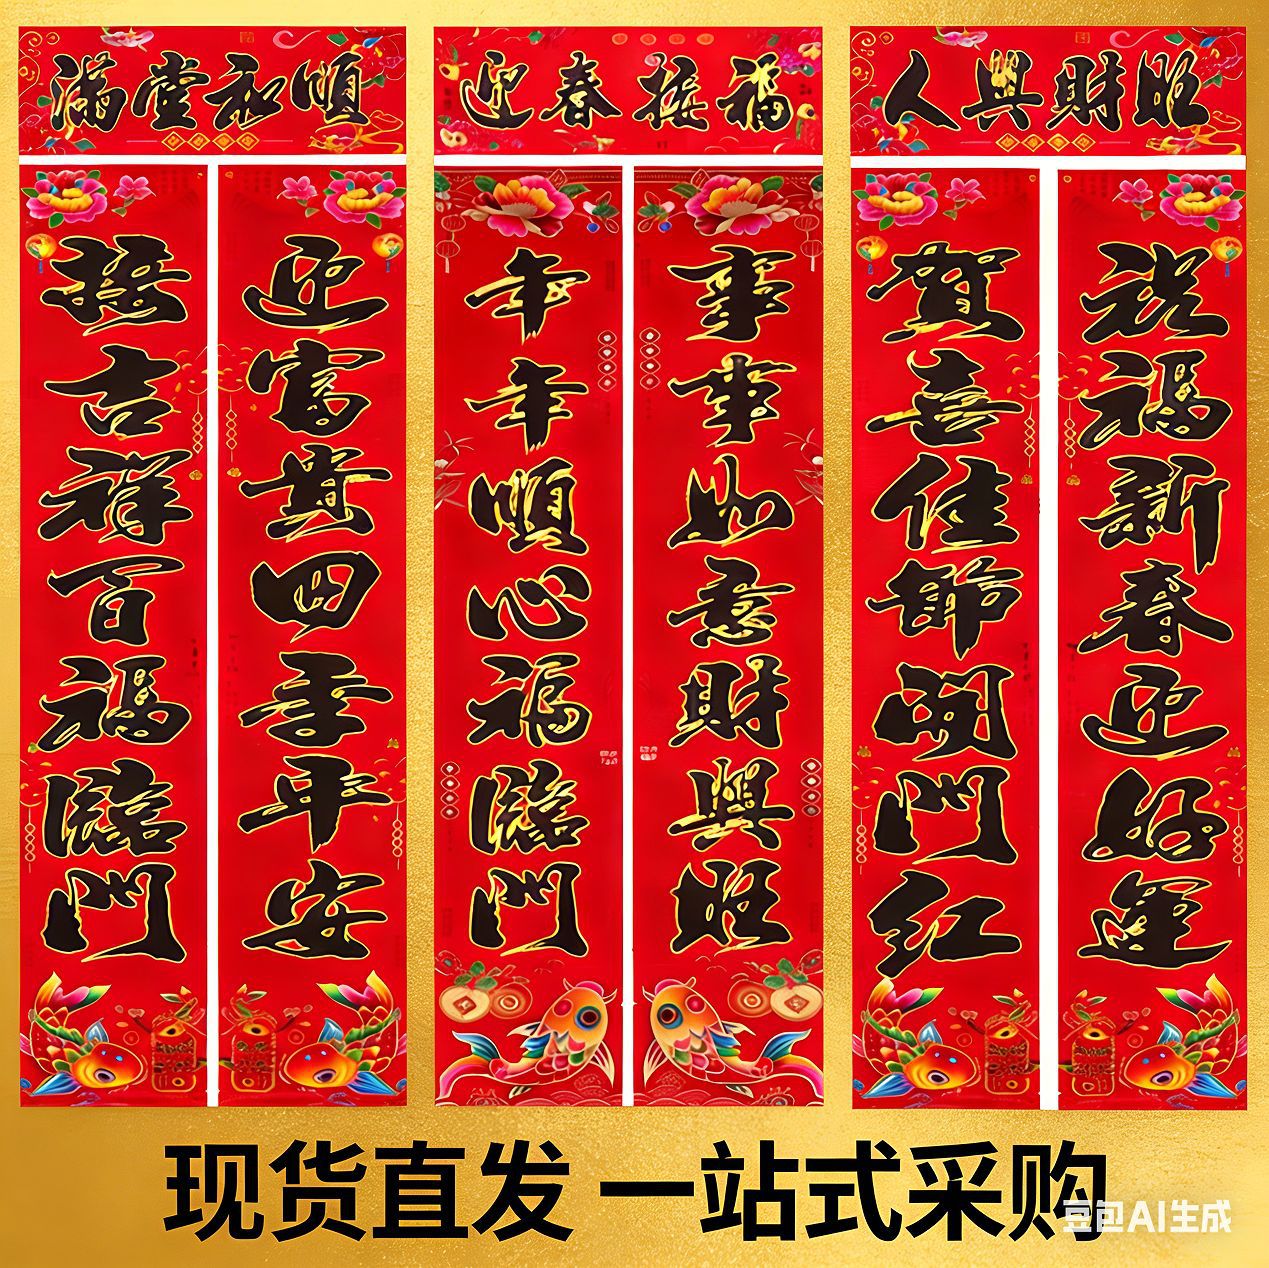 满堂永顺
迎春接福
人興財旺
接吉祥百福臨門
迎富貴四季平安
年年順心福臨門
事事如意財興旺
賀喜佳節開門红
祝福新春迎好運
现货直发 一站式采购
豆包AI生成